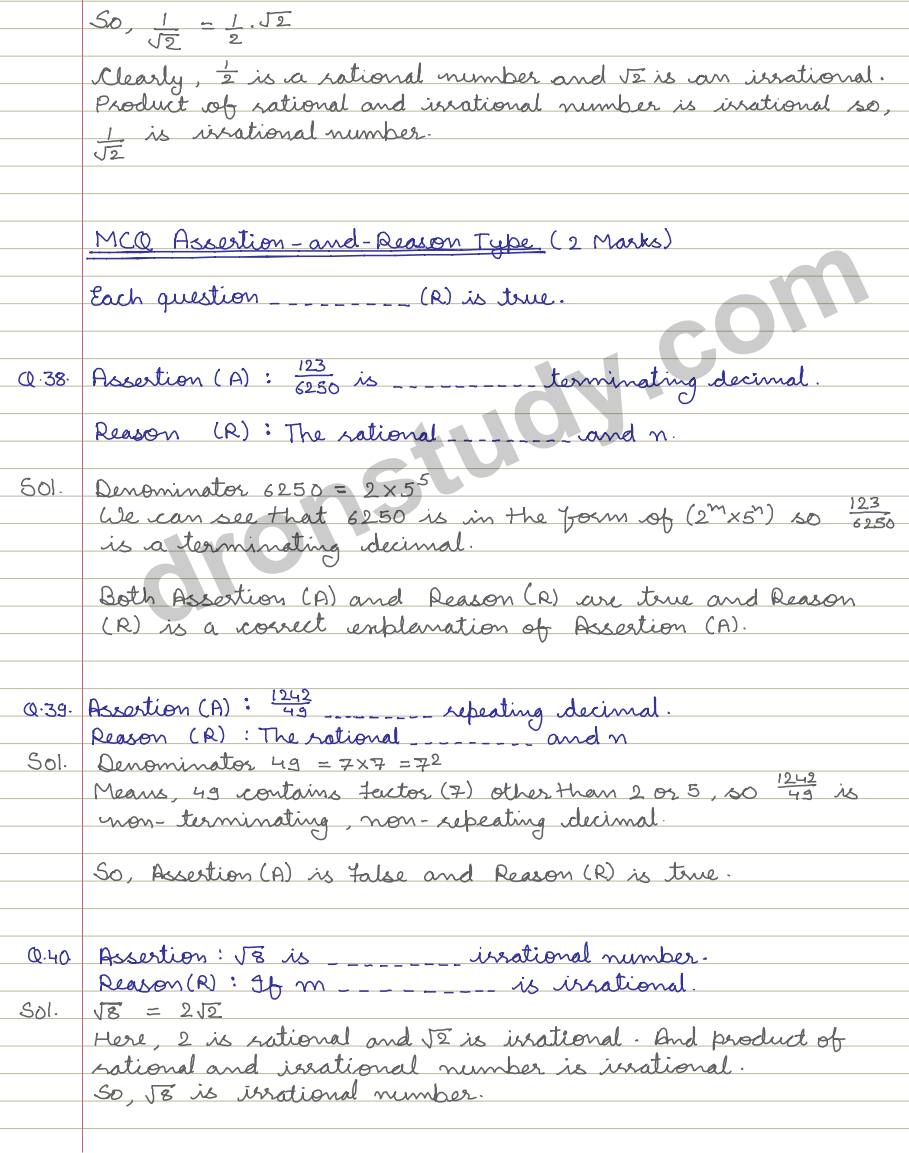 So, 1/√2 = 1/2 · √2
Clearly, 1/2 is a rational number and √2 is an irrational.
Product of rational and irrational number is irrational so,
1/√2 is irrational number.
MCQ Assertion-and-Reason Type (2 Marks)
Each question _ _ _ _ _ _ _ _ _ (R) is true.
Q.38. Assertion (A) : 123/6250 is _ _ _ _ _ _ _ _ _ _ terminating decimal.
Reason (R) : The rational _ _ _ _ _ _ _ _ _ and n.
Sol. Denominator 6250 = 2×5⁵
We can see that 6250 is in the form of (2ᵐ×5ⁿ) so 123/6250
is a terminating decimal.
Both Assertion (A) and Reason (R) are true and Reason
(R) is a correct explanation of Assertion (A).
Q.39. Assertion (A) : 1242/49 _ _ _ _ _ _ _ _ _ repeating decimal.
Reason (R) : The rational _ _ _ _ _ _ _ _ _ and n
Sol. Denominator 49 = 7×7 = 7²
Means, 49 contains factor (7) other than 2 or 5, so 1242/49 is
non-terminating, non-repeating decimal.
So, Assertion (A) is False and Reason (R) is true.
Q.40 Assertion : √8 is _ _ _ _ _ _ _ _ _ irrational number.
Reason (R) : If m _ _ _ _ _ _ _ _ _ _ is irrational.
Sol. √8 = 2√2
Here, 2 is rational and √2 is irrational. And product of
rational and irrational number is irrational.
So, √8 is irrational number.
dronstudy.com